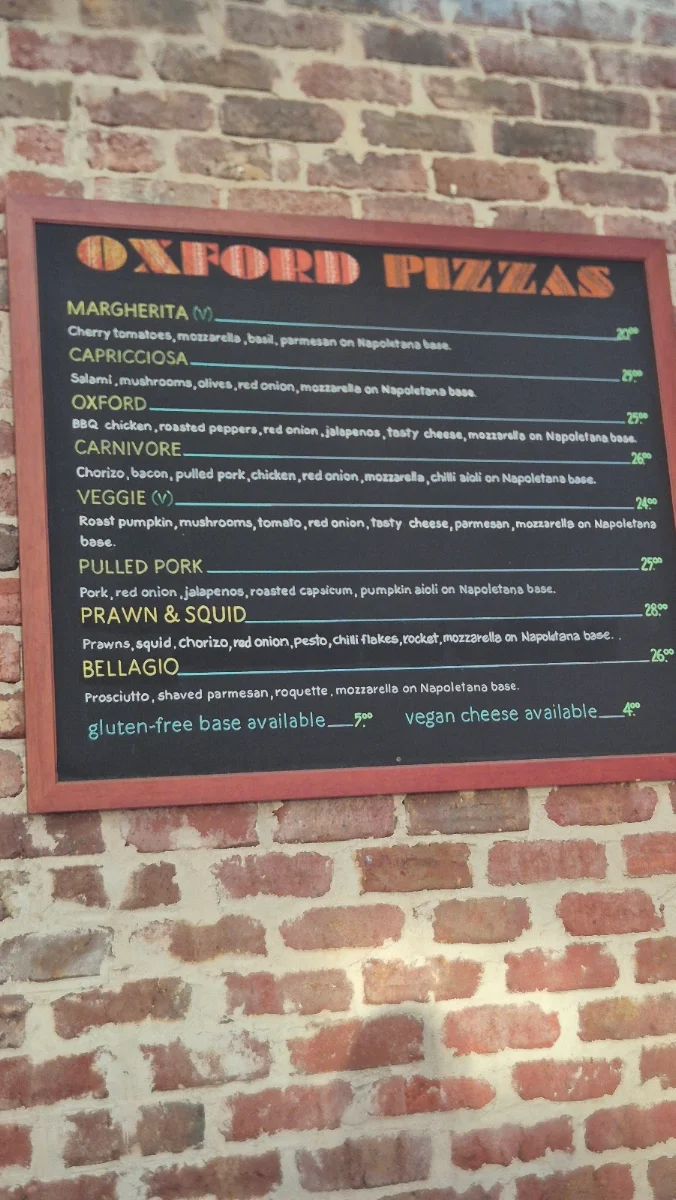 OXFORD PIZZAS
MARGHERITA (V) 20.00
Cherry tomatoes, mozzarella, basil, parmesan on Napoletana base.
CAPRICCIOSA 25.00
Salami, mushrooms, olives, red onion, mozzarella on Napoletana base.
OXFORD 25.00
BBQ chicken, roasted peppers, red onion, jalapenos, tasty cheese, mozzarella on Napoletana base.
CARNIVORE 26.00
Chorizo, bacon, pulled pork, chicken, red onion, mozzarella, chilli aioli on Napoletana base.
VEGGIE (V) 24.00
Roast pumpkin, mushrooms, tomato, red onion, tasty cheese, parmesan, mozzarella on Napoletana
base.
PULLED PORK 25.00
Pork, red onion, jalapenos, roasted capsicum, pumpkin aioli on Napoletana base.
PRAWN & SQUID 28.00
Prawns, squid, chorizo, red onion, pesto, chilli flakes, rocket, mozzarella on Napoletana base. .
BELLAGIO 26.00
Prosciutto, shaved parmesan, roquette, mozzarella on Napoletana base.
gluten-free base available 5.00 vegan cheese available 4.00